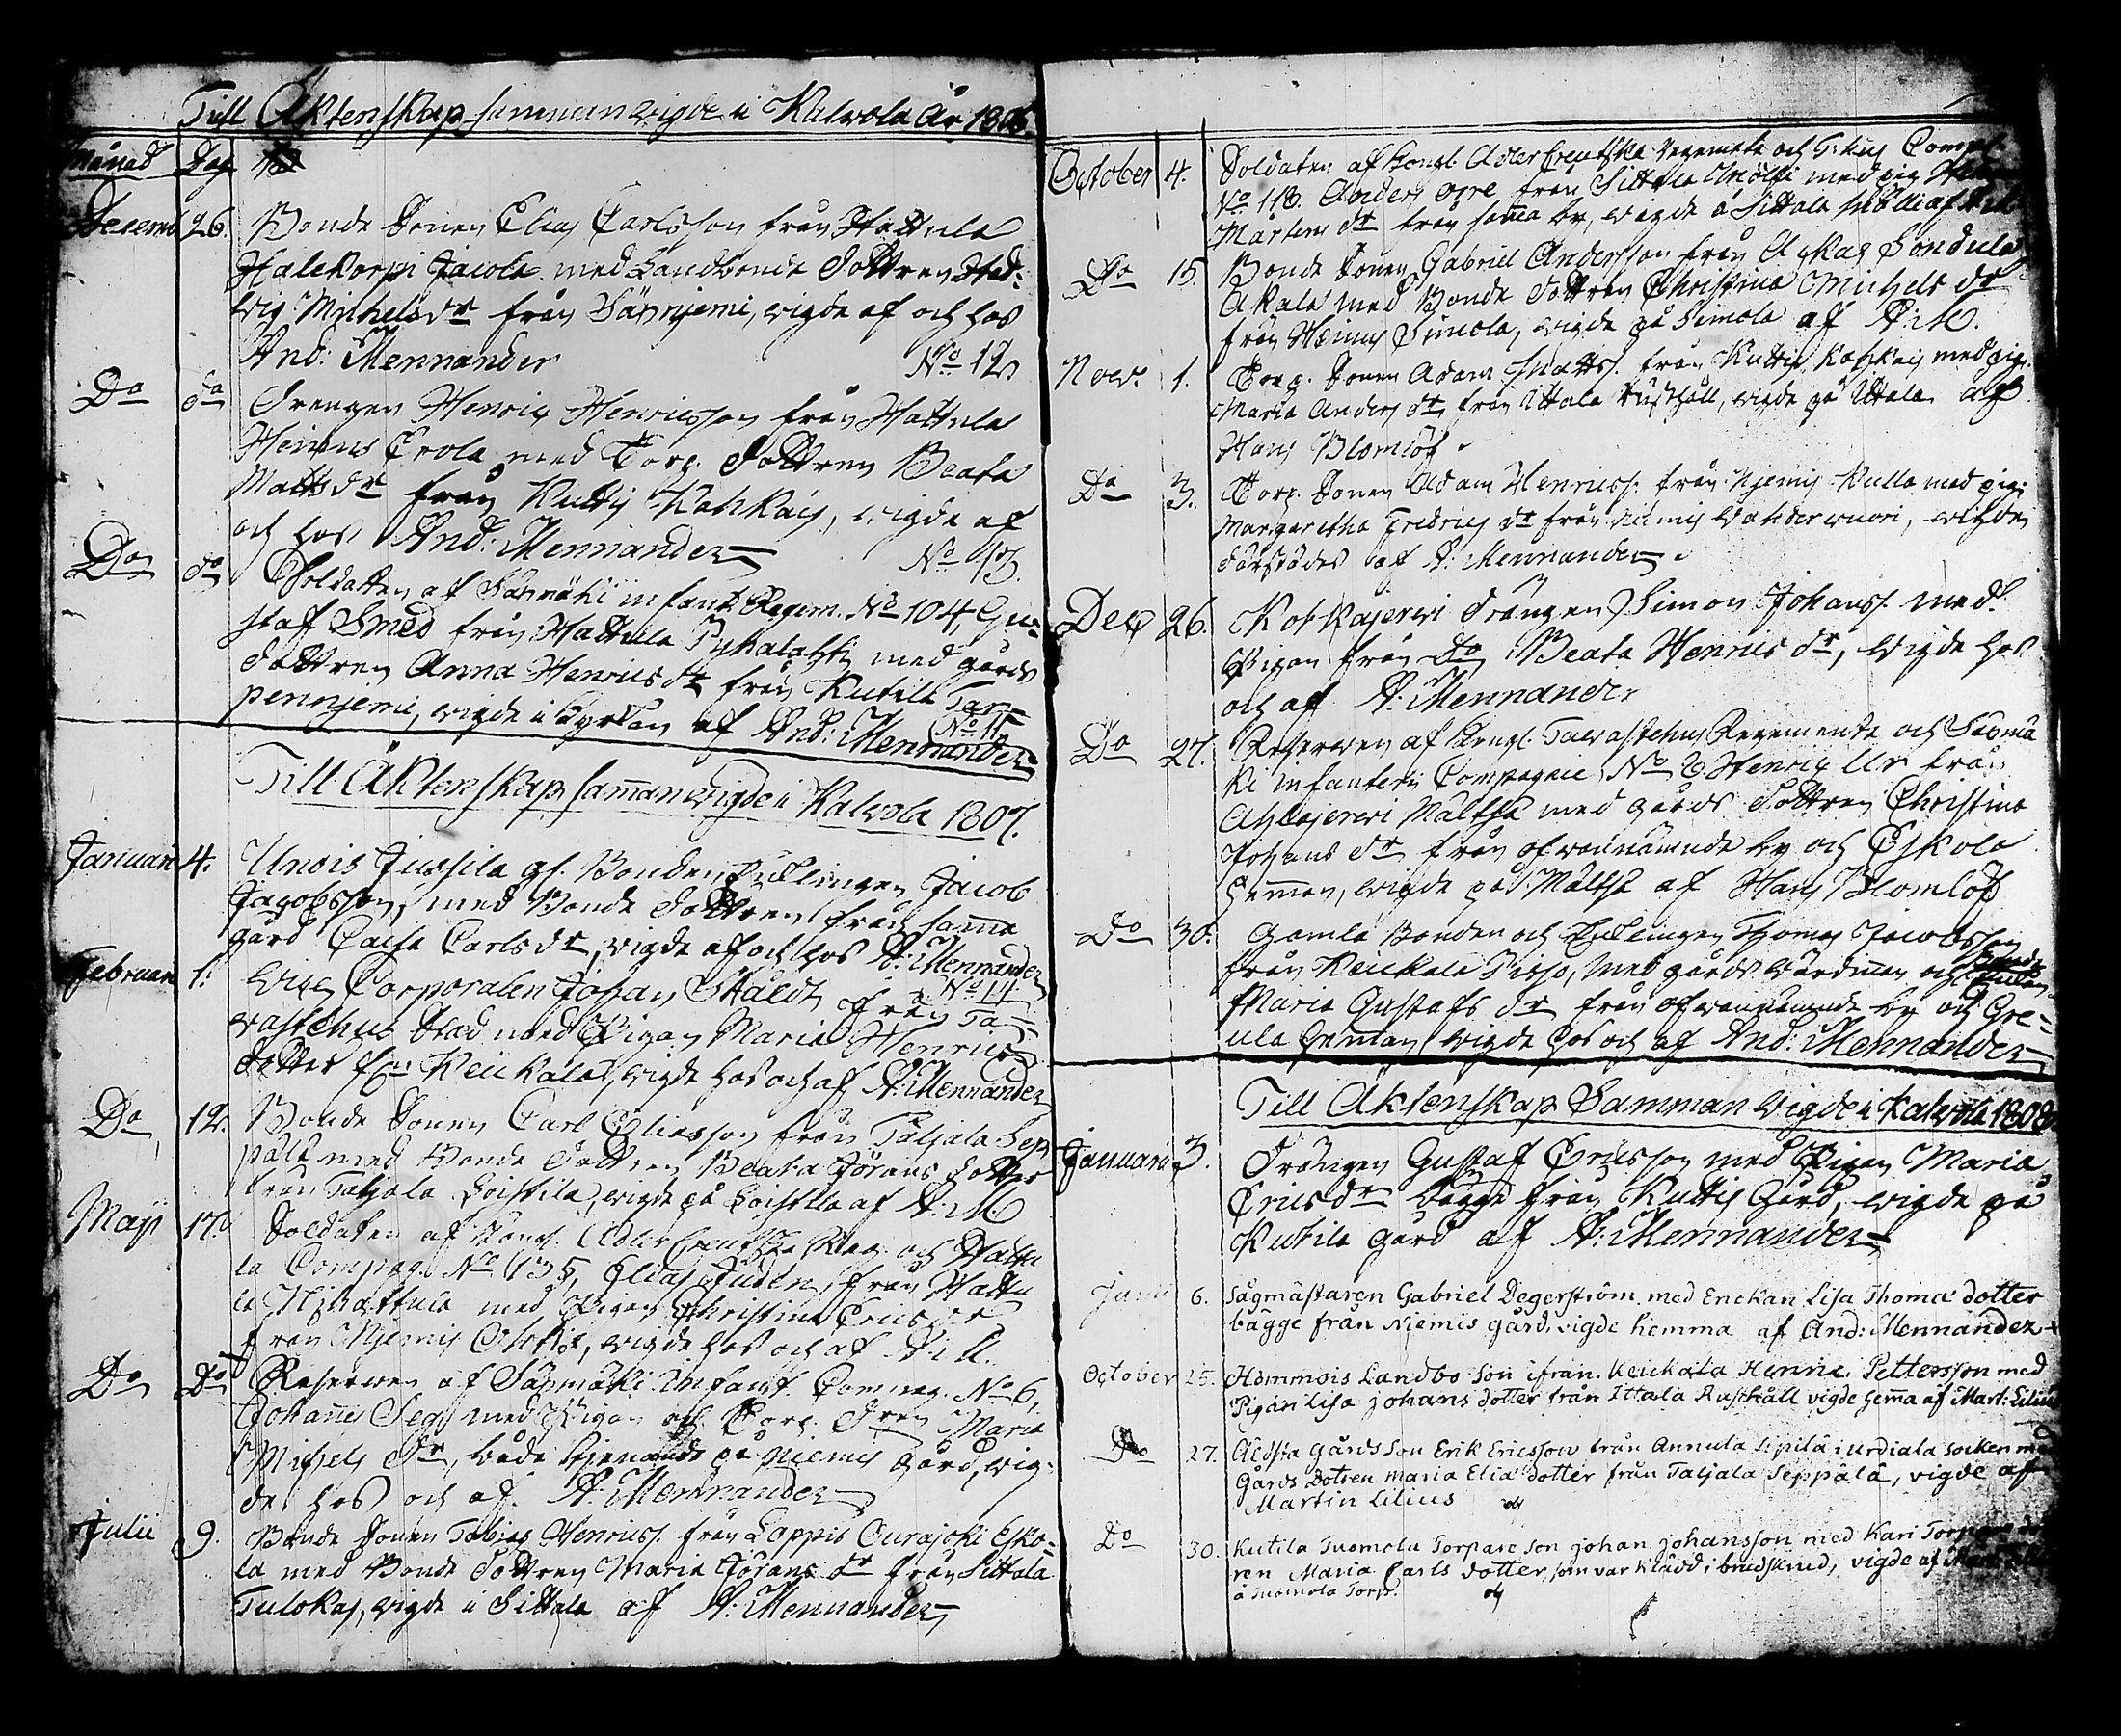 Till Äktenskap sammanvigde i Kalvola År 1806.
Månad Dag
Decemb 26. Bonde Sonen Elias Carlsson från Hattula
Halekorpi Jacola med Landbonde Dottren Hed-
vig Michelsdr från Särnjemi, vigde af och hos
And: Mennander No 12
Do do Drengen Henric Henricsson från Hattula
Heinus Erola med Torp. Dottren Beata
Mattsdr från Kuttis Kahkais, vigde af
och hos And: Mennander No 13.
Do do Soldaten af Säxmäki infant. Regem. No 104 Gu-
staf Smed från Hattula Pyhälahti med gårds
Dottren Anna Henricsdr från Kutila Tan-
pennjemi, vigde i Kyrkan af And: Mennander
No 14
Till Äktenskap sammanvigde i Kalvola 1807.
Januarii 4. Unois Jussila gl. Bonden Enklingen Jacob
Jacobsson, med Bonde Dottren från samma
gård Caisa Carlsdr, vigde af och hos A: Mennander
Februarii 1. Vice Corporalen Johan Ståldt från Ta-
vastehus Stad med Pigan Maria Henrics
Dotter från Keickala, vigde hos och af A: Mennander
Do 12. Bonde Sonen Carl Eliasson från Taljala Sep-
pälä med Bonde Dottren Beata Jörans Dotter
från Taljala Loistila, vigde på Loistila af A: M
Maji 17. Soldaten af Kongl. Adlercreutzska Reg. och Hattu
la Compag. No 135, Elias Judén, från Hattu
la Hinattula med Pigan Christina Ericsdr
från Njemis, vigde hos och af A: M.
Do Do Reserven af Säxmäki Infant. Compag. No 6,
Johannes Seg, med Pigan och Torp. Dren Maria
Michelsdr, både tjenande på Niemis Gård, vig-
de hos och af A: Mennander
Julii 9. Bonde Sonen Tobias Henricss. från Loppis Ourajoki Esko-
la med Bonde Dottren Maria Jörans dr från Sittala
Tulokas, vigde i Sittala af A: Mennander
October 4. Soldaten af Kongl. Adlercreutzska Regemente och Compag.
No 118. Anders från Sittala Uhölli med pig
Martens dr från samma by, vigde å Sittala Uhölli af A: M
Do 15. Bonde Sonen Gabriel Andersson från Akas Sondula
Akala med Bonde Dottren Christina Michels dr
från Heinus Simola, vigde på Simola af A: M.
Nov. 1. Torp. Sonen Adam Mattss. från Kuttis Kahkais med pig.
Maria Anders dr från Ittala Rusthåll, vigde på Ittala af
Hans Blomlöf
Do 3. Torp. Sonen Adam Henricss. från Njemis Kulla med pig.
Margaretha Fredrics dr från Niemis, vigde
därstädes af A: Mennander
Dec 26. Kotkajervi Drängen Simon Johanss. med
Pigan från Do Beata Henrics dr, vigde hos
och af A: Mennander
Do 27. Reserven af Kongl. Tavastehus Regemente och Säxmä
ki infanteri Compagnie No 6 Henric Ur från
Ahlajervi Maltsa med gårds Dottren Christina
Johans dr från ofvannämnde by och Eskola
hemman, vigde på Maltsa af Hans Blomlöf
Do 30. Gamla Bonden och Enklingen Thomas Jacobsson
från Keickala Pispo, med gårds värdinnan och Enkan
Maria Gustafs dr från ofvannämnde by och Gre-
ula hemman vigde hos och af And: Mennander
Till Äktenskap Samman vigde i Kalvola 1808
Januarii 3. Drängen Gustaf Ericsson med Pigan Maria
Ericsdr bägge från Kuttis Gård, vigde på
Kutila gård af A: Mennander
Junii 6. Sågmästaren Gabriel Degerström med Enekan Lisa Thoma dotter
bägge från Niemis gård, vigde hemma af And: Mennander
October 25. Hömmois Landbo Son ifrån Keickala Henric Pettersson med
Pigan Lisa Johans dotter från Ittala Rusthåll vigde hemma af Mart: Lilius
Do 27. Äldsta gårds son Erik Ericsson från Annula Sipilä i Urdiala socken med
Gårds Dotren Maria Elia dotter från Taljala Seppälä, vigde af
Martin Lilius
Do 30. Kutila Tuomola Torpare son Johan Johansson med Kari Torpare dot
ren Maria Carls dotter, som var klädd i brudskrud, vigde af Mart: Lilius
å Tuomola Torp.